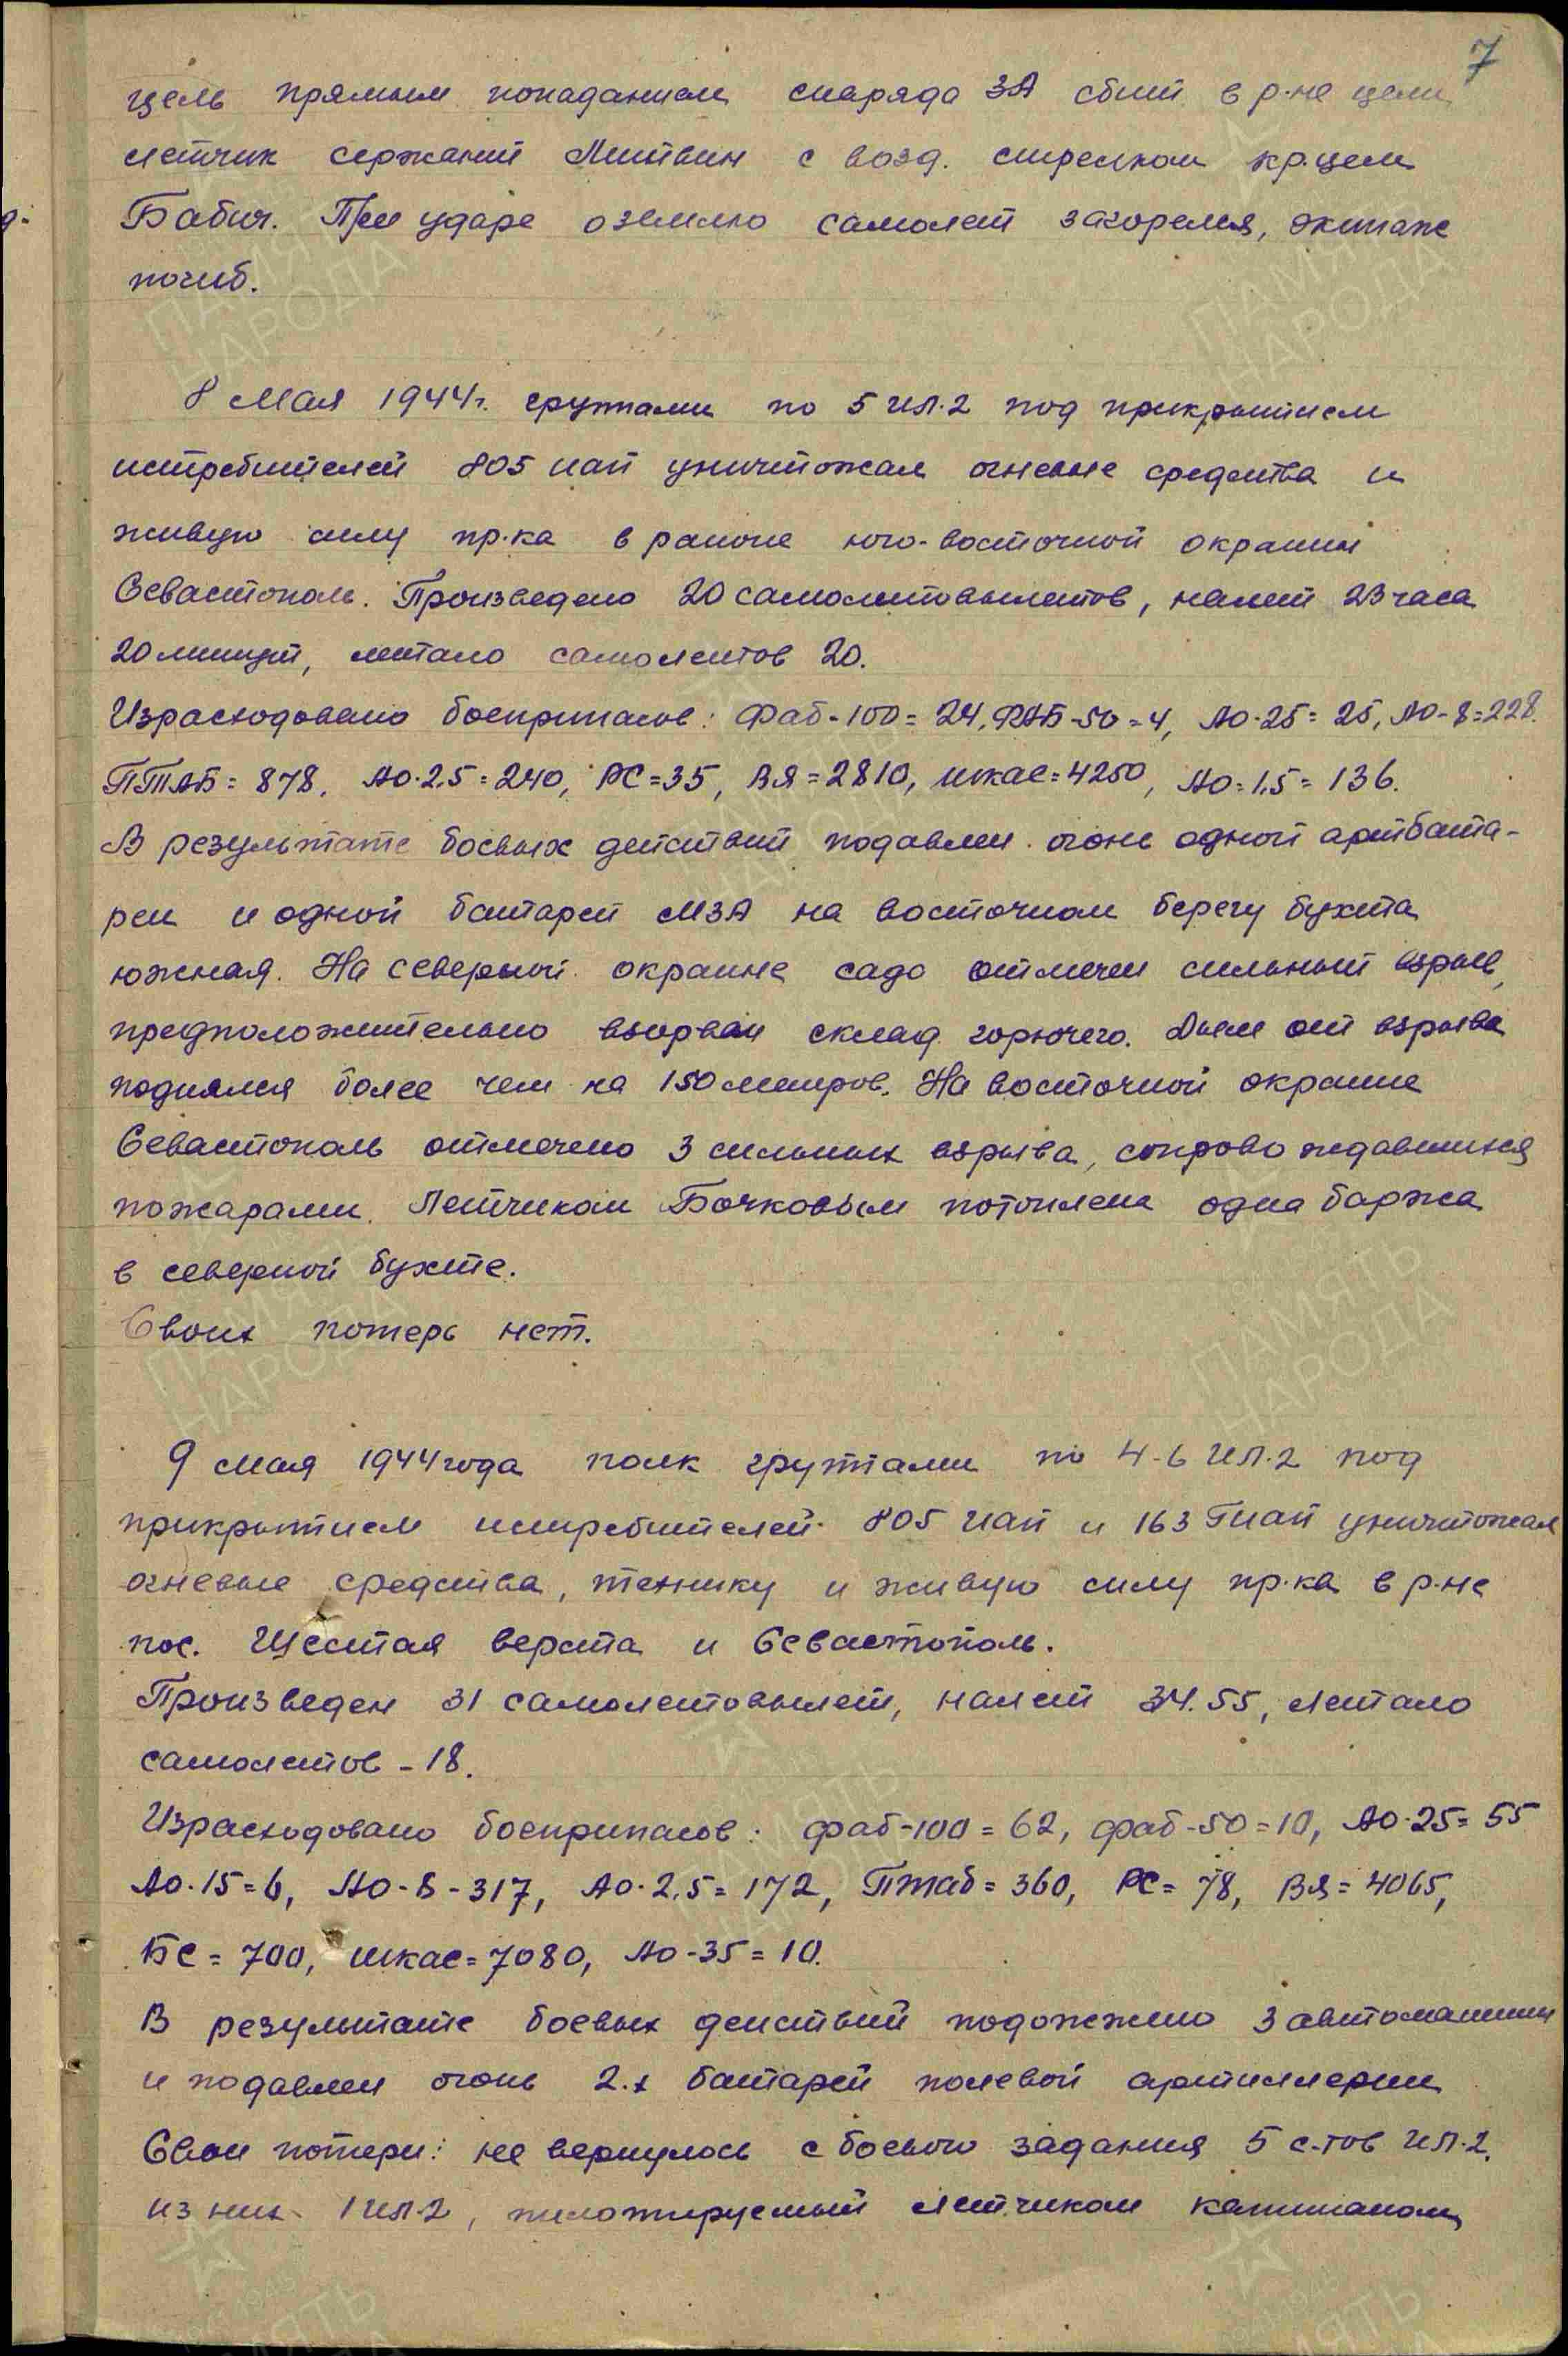 7
цель прямым попаданием снаряда ЗА сбит в р-не цели
летчик сержант Литвин с возд. стрелком кр-цем
Бабич. При ударе о землю самолет загорелся, экипаж
погиб.
8 мая 1944г. группами по 5 ил-2 под прикрытием
истребителей 805 иап уничтожал огневые средства и
живую силу пр-ка в районе юго-восточной окраины
Севастополь. Произведено 20 самолетовылетов, налет 23 часа
20 минут, летало самолетов 20.
Израсходовано боеприпасов: Фаб-100=24, ФАБ-50=4, АО-25=25, АО-8=228.
ПТАБ=878, АО-2,5=240, РС=35, ВЯ=2810, шкас=4250, АО-1,5=136.
В результате боевых действий подавлен огонь одной артбата-
реи и одной батареи МЗА на восточном берегу бухта
южная. На северной окраине садо отмечен сильный взрыв,
предположительно взорван склад горючего. Дым от взрыва
поднялся более чем на 150 метров. На восточной окраине
Севастополь отмечено 3 сильных взрыва, сопровождавшихся
пожарами. Летчиком Бочковым потоплена одна баржа
в северной бухте.
Своих потерь нет.
9 мая 1944 года полк группами по 4-6 ил-2 под
прикрытием истребителей 805 иап и 163 Гиап уничтожал
огневые средства, технику и живую силу пр-ка в р-не
пос. Шестая верста и Севастополь.
Произведен 31 самолетовылет, налет 34.55, летало
самолетов - 18.
Израсходовано боеприпасов: фаб-100=62, фаб-50=10, АО-25=55
АО-15=6, АО-8-317, АО-2,5=172, Птаб=360, РС=78, ВЯ=4065,
БС=700, шкас=7080, АО-35=10.
В результате боевых действий подожжено 3 автомашины
и подавлен огонь 2-х батарей полевой артиллерии
Свои потери: не вернулось с боевого задания 5 с-тов ил-2.
из них 1 ил-2, пилотируемый летчиком капитаном